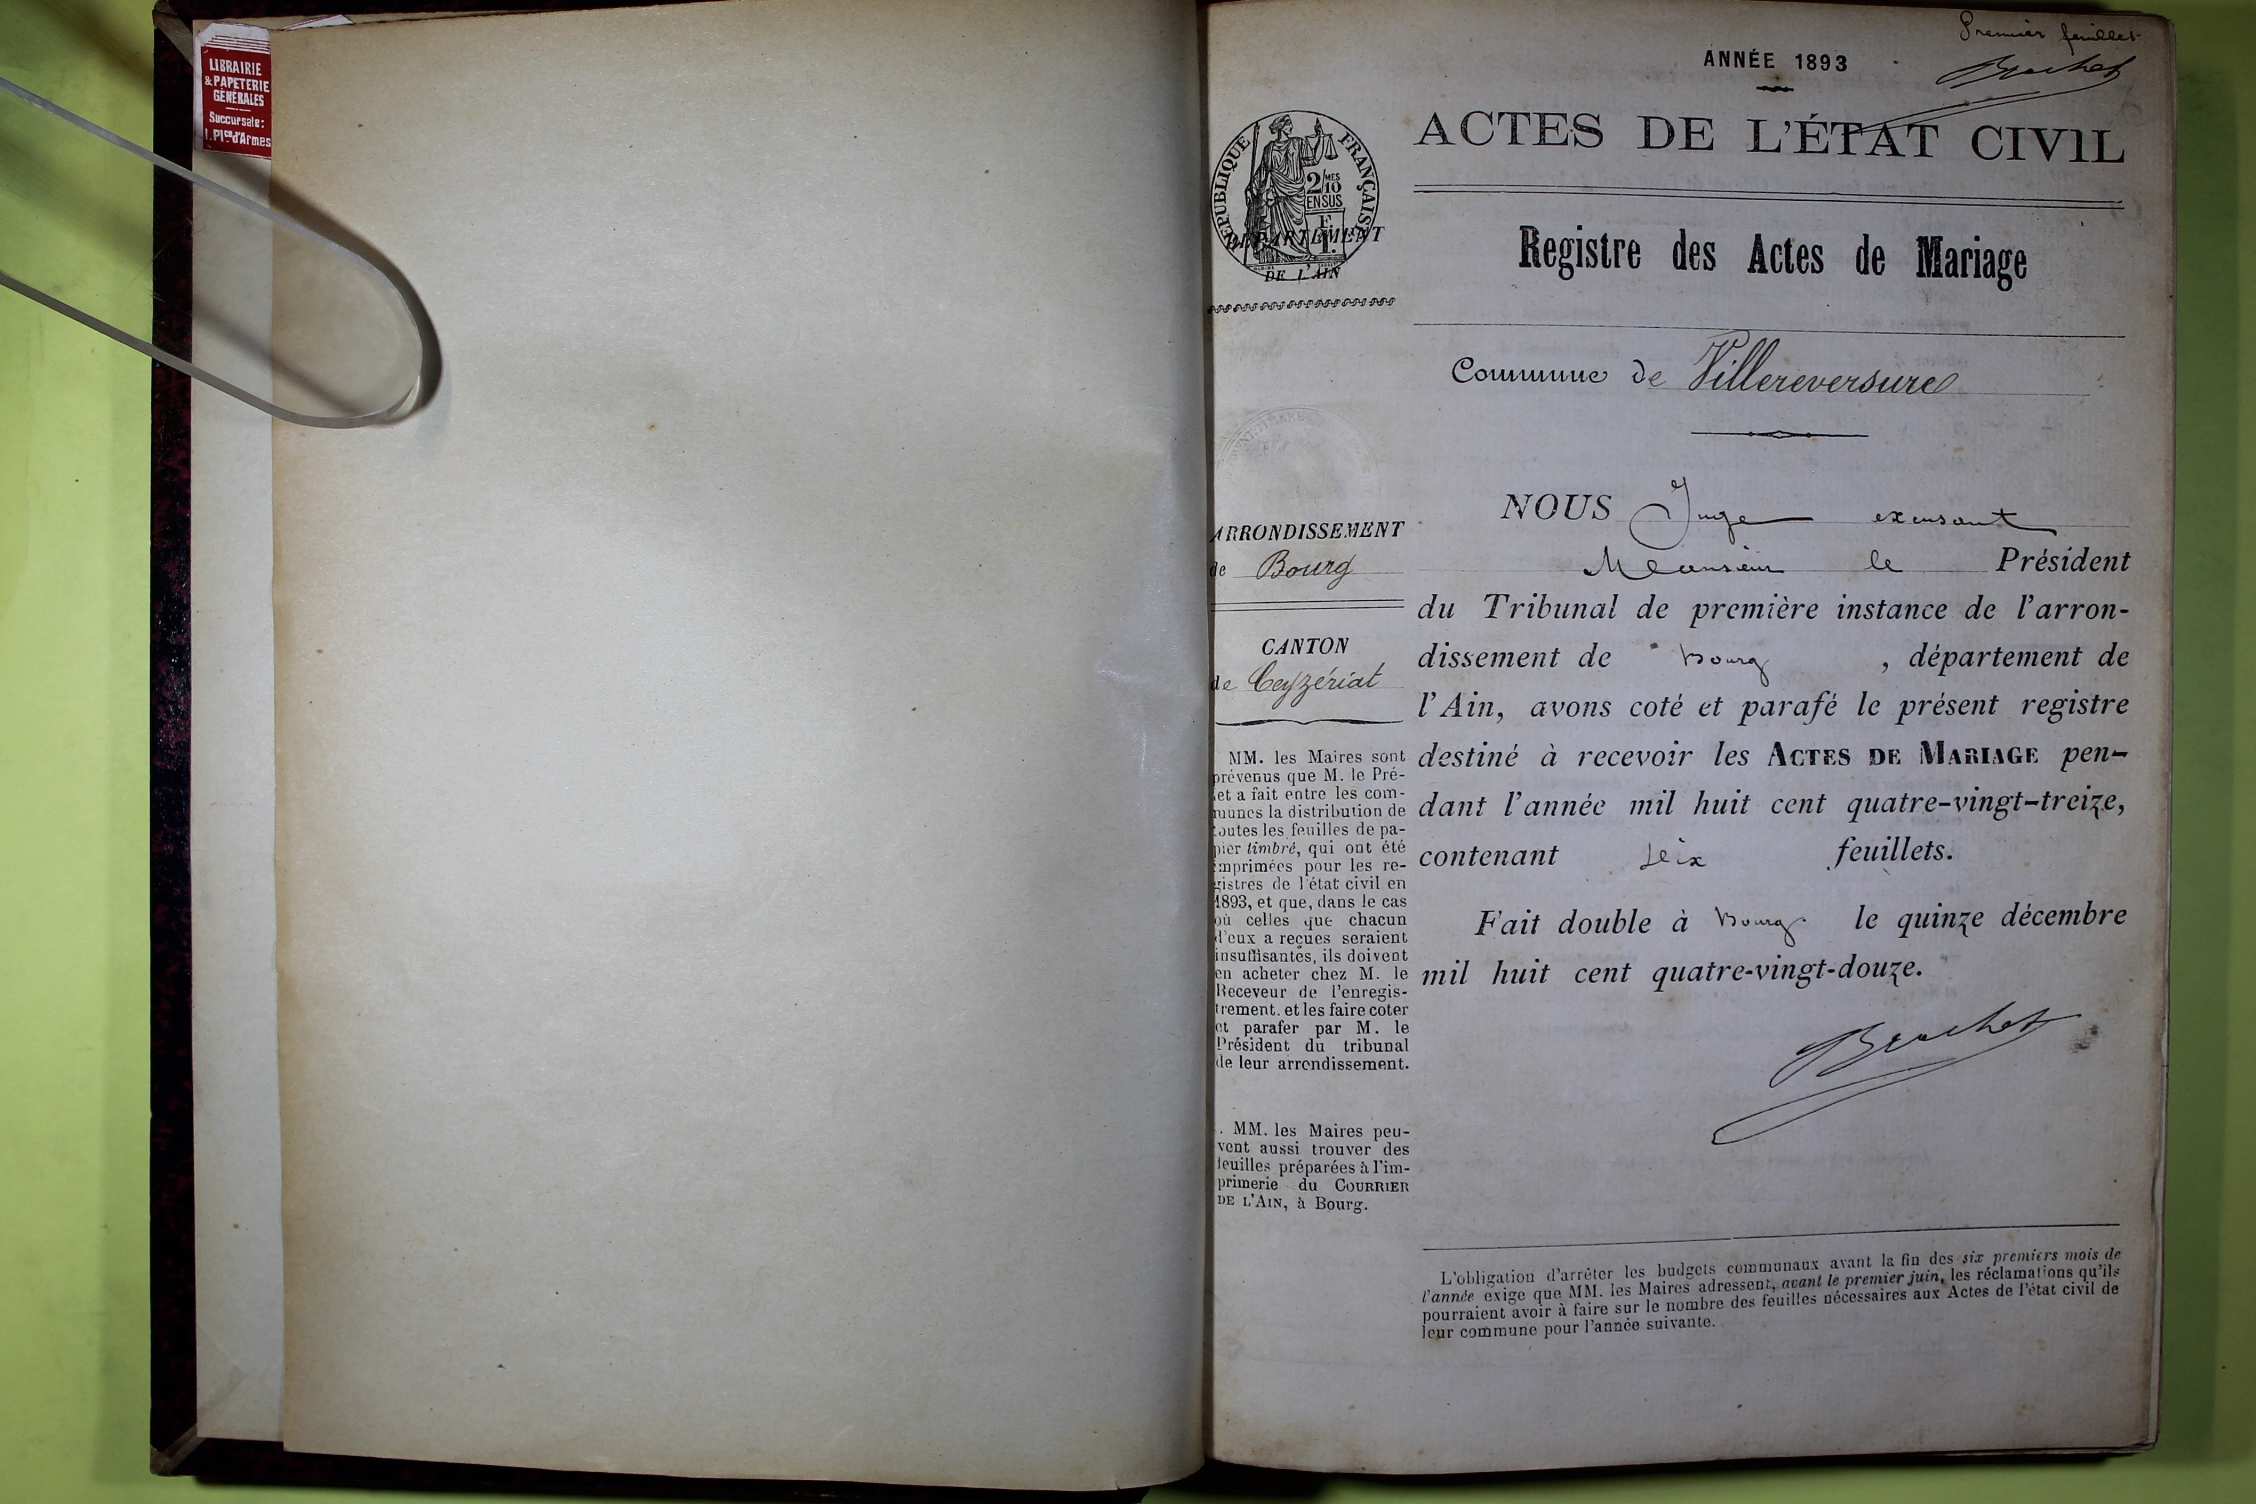 LIBRAIRIE
& PAPETERIE
GÉNÉRALES
Succursale:
1, Plce d'Armes
Premier feuillet
Brochet
ANNÉE 1893
ACTES DE L'ÉTAT CIVIL
RÉPUBLIQUE FRANÇAISE
2/10 MES
EN SUS
DÉPARTEMENT
DE L'AIN
Registre des Actes de Mariage
Commune de Villereversure
ARRONDISSEMENT
de Bourg
CANTON
de Ceyzériat
MM. les Maires sont
prévenus que M. le Pré-
fet a fait entre les com-
munes la distribution de
toutes les feuilles de pa-
pier timbré, qui ont été
imprimées pour les re-
gistres de l'état civil en
1893, et que, dans le cas
où celles que chacun
d'eux a reçues seraient
insuffisantes, ils doivent
en acheter chez M. le
Receveur de l'enregis-
trement. et les faire coter
et parafer par M. le
Président du tribunal
de leur arrondissement.
MM. les Maires peu-
vent aussi trouver des
feuilles préparées à l'im-
primerie du COURRIER
DE L'AIN, à Bourg.
NOUS Juge
Monsieur le Président
du Tribunal de première instance de l'arron-
dissement de Bourg, département de
l'Ain, avons coté et parafé le présent registre
destiné à recevoir les ACTES DE MARIAGE pen-
dant l'année mil huit cent quatre-vingt-treize,
contenant feuillets.
Fait double à Bourg le quinze décembre
mil huit cent quatre-vingt-douze.
Brochet
L'obligation d'arrêter les budgets communaux avant la fin des six premiers mois de
l'année exige que MM. les Maires adressent, avant le premier juin, les réclamations qu'ils
pourraient avoir à faire sur le nombre des feuilles nécessaires aux Actes de l'état civil de
leur commune pour l'année suivante.